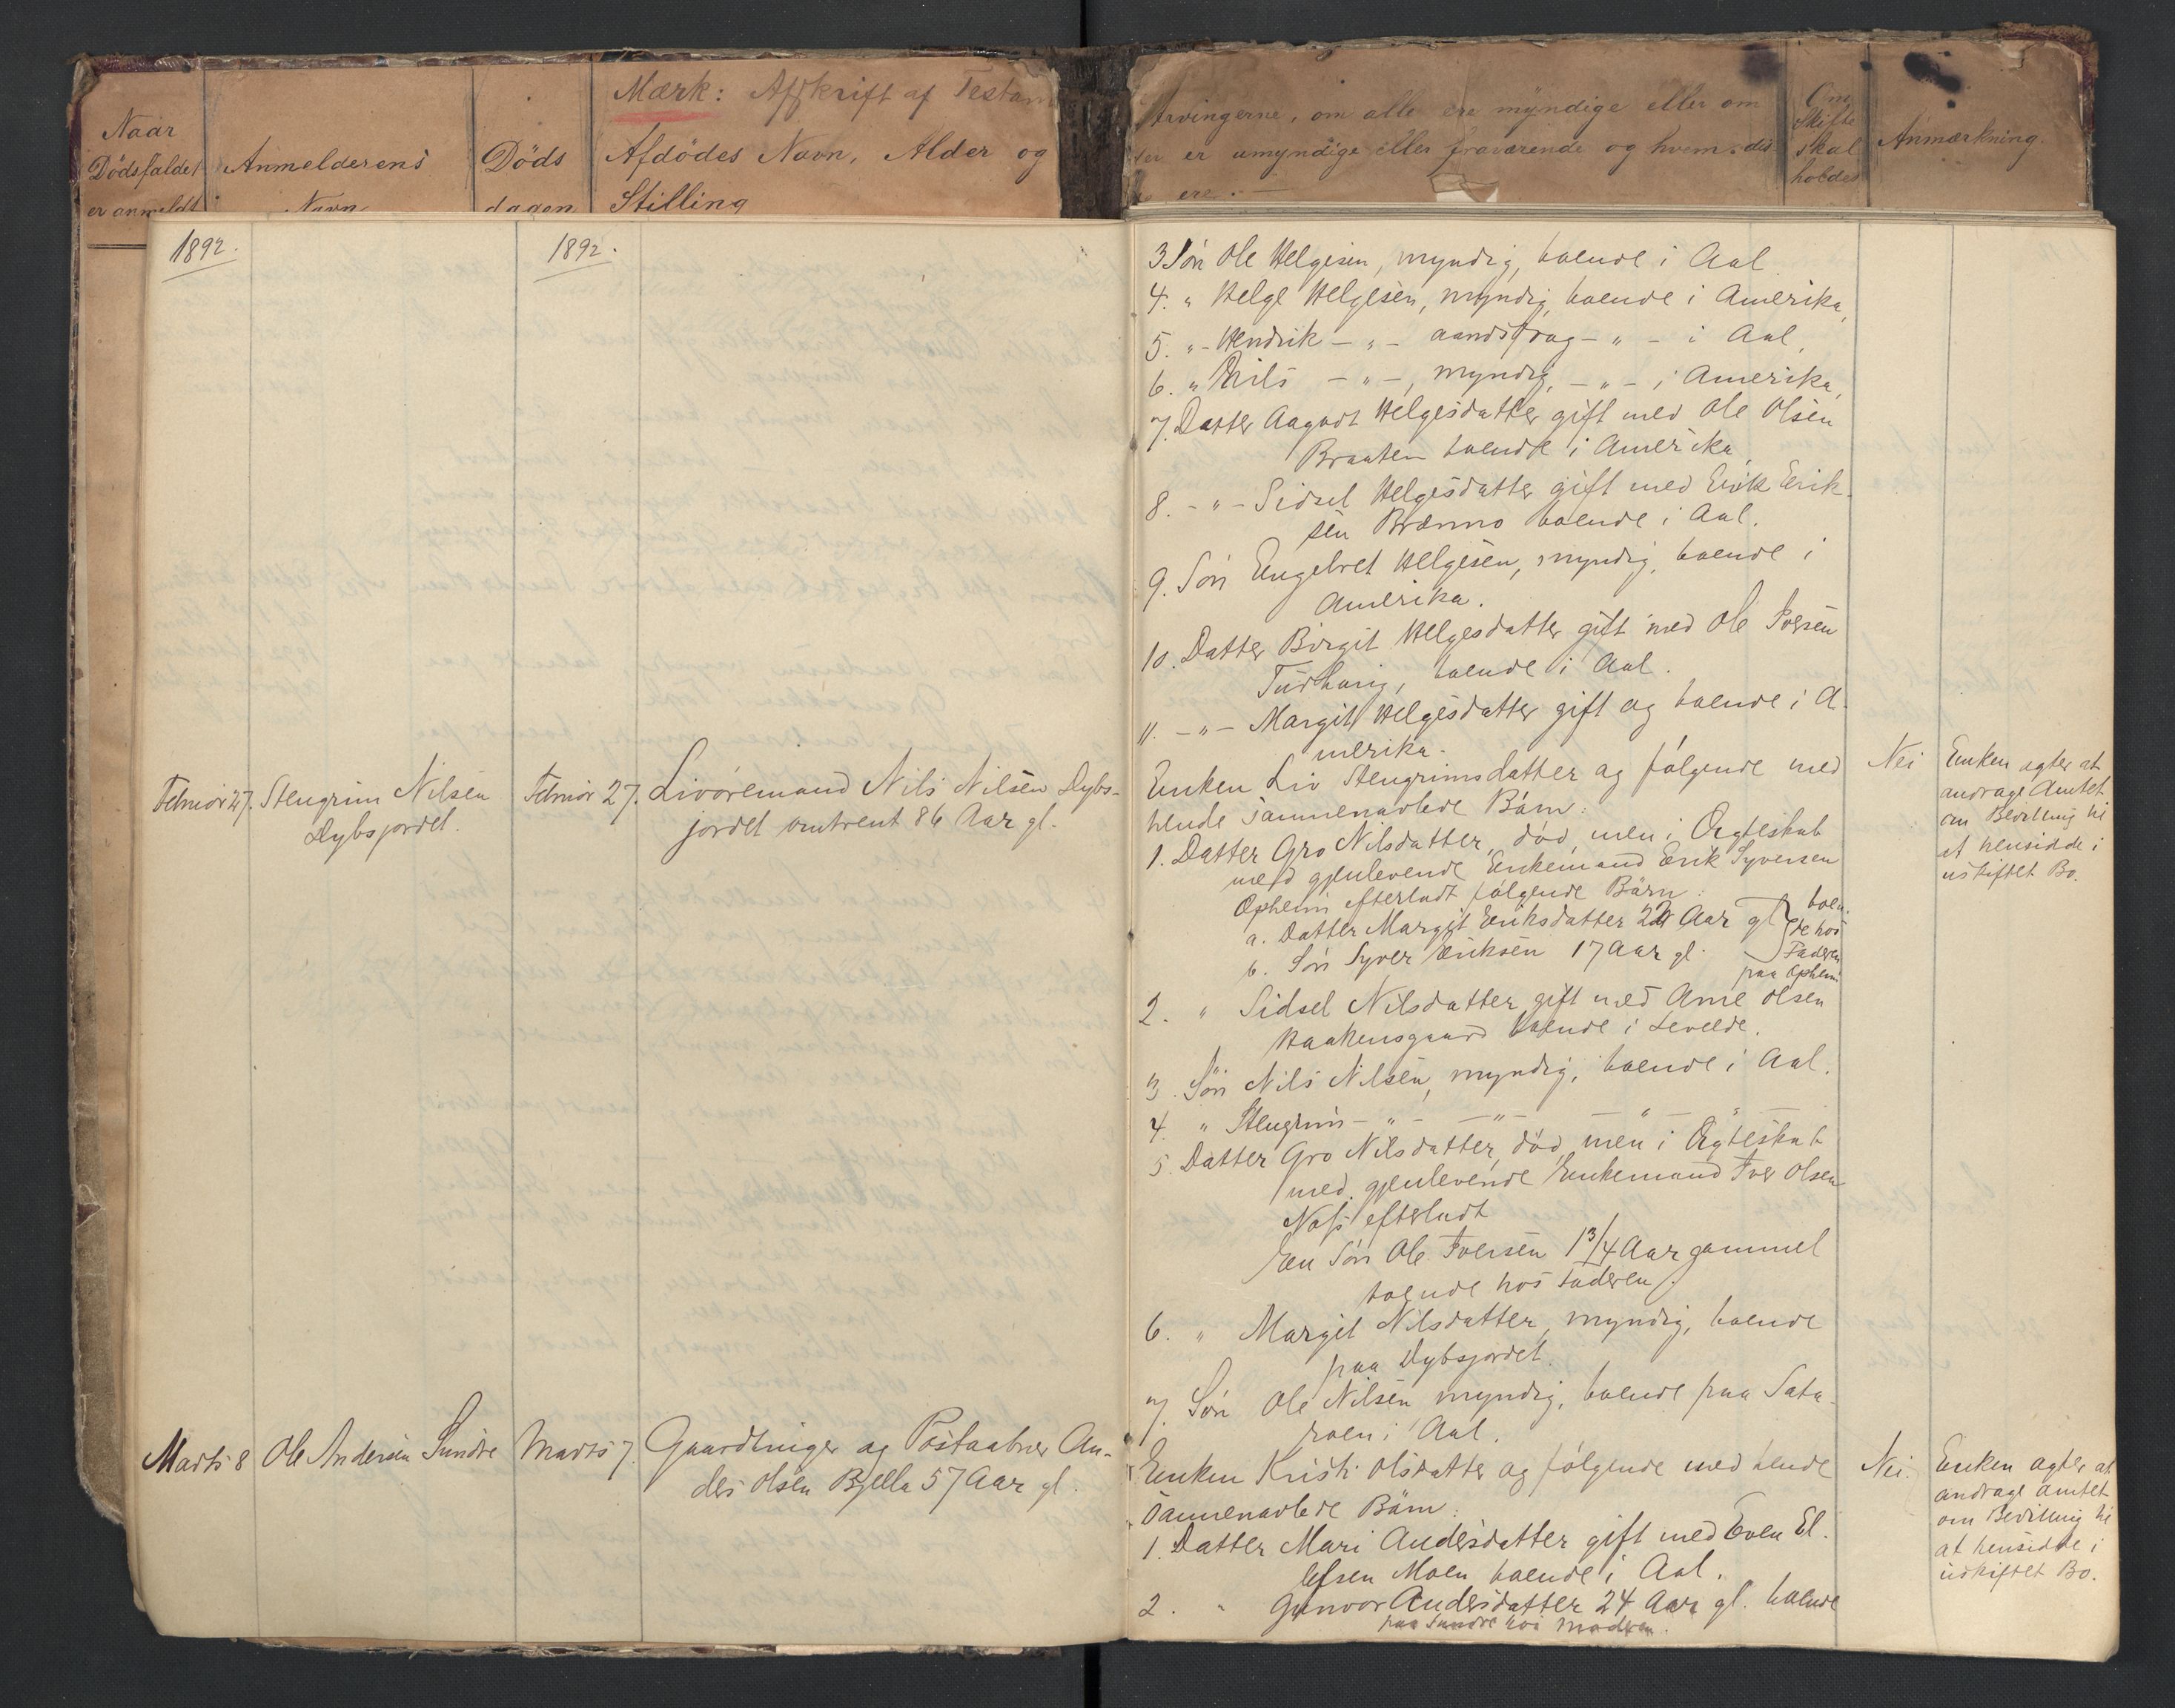 Mærk: Afskrift af Testam
Naar
Dödsfaldet
er anmeldt
Anmelderens
Navn
Döds
dagen
Afdödes Navn, Alder og
Stilling
Arvingerne, om alle ere myndige eller om
er umyndige eller fraværende og hvem dis
ere.
Om
Skifte
skal
holdes
Anmærkning.
1892.
1892.
3 Søn Ole Helgesen, myndig, boende i Aal
4. " Helge Helgesen, myndig, boende i Amerika,
5. " - Hendrik - " - aandssvag - " - i Aal,
6. " Nils - " -, myndig, - " - i Amerika,
7. Datter Aagodt Helgesdatter gift med Ole Olsen
Braaten boende i Amerika,
8. - " - Sidsel Helgesdatter gift med Erik Erik-
sen Brenno boende i Aal.
9. Søn Engebret Helgesen, myndig, boende i
Amerika.
10. Datter Birgit Helgesdatter gift med Ole Iversen
boende i Aal.
11. - " - Margit Helgesdatter gift og boende i A-
merika.
Februar 27. Stengrim Nilsen
Dybsjordet.
Februar 27. Livøremand Nils Nilsen Dybs-
jordet omtrent 86 Aar gl.
Enken Liv Stengrimsdatter og følgende med
hende sammenavlede Børn:
1. Datter Gro Nilsdatter, død, men i Ægteskab
med gjenlevende Enkemand Erik Syversen
Opheim efterladt følgende Børn:
a. Datter Margit Eriksdatter 22 Aar gl
b. Søn Syver Eriksen 17 Aar gl.
boen-
de hos
Faderen
paa Opheim
2. " Sidsel Nilsdatter gift med Arne Olsen
Haakensgaard boende i Leveld.
3. Søn Nils Nilsen, myndig, boende i Aal.
4. " Stengrim - " - - " - - " - " -
5. Datter Gro Nilsdatter, død, men i Ægteskab
med gjenlevende Enkemand Iver Olsen
Næss efterladt
En Søn Ole Iversen 1 3/4 Aar gammel
boende hos Faderen.
6. " Margit Nilsdatter, myndig, boende
paa Dybsjordet.
7. Søn Ole Nilsen myndig, boende paa Sata-
røen i Aal.
Nei
Enken agter at
andrage Amtet
om Bevilling til
at hensidde i
uskiftet Bo.
Marts 8 Ole Andersen Sundre
Marts 7. Gaardbruger og Postaabner An-
ders Olsen Bjella 57 Aar gl.
Enken Kristi Olsdatter og følgende med hende
sammenavlede Børn:
1. Datter Mari Andersdatter gift med Even El-
lefsen Moen boende i Aal.
2. " Gunvor Andersdatter 24 Aar gl. boende
paa Sundre hos Moderen.
Nei.
Enken agter at
andrage Amtet
om Bevilling til
at hensidde i
uskiftet Bo.